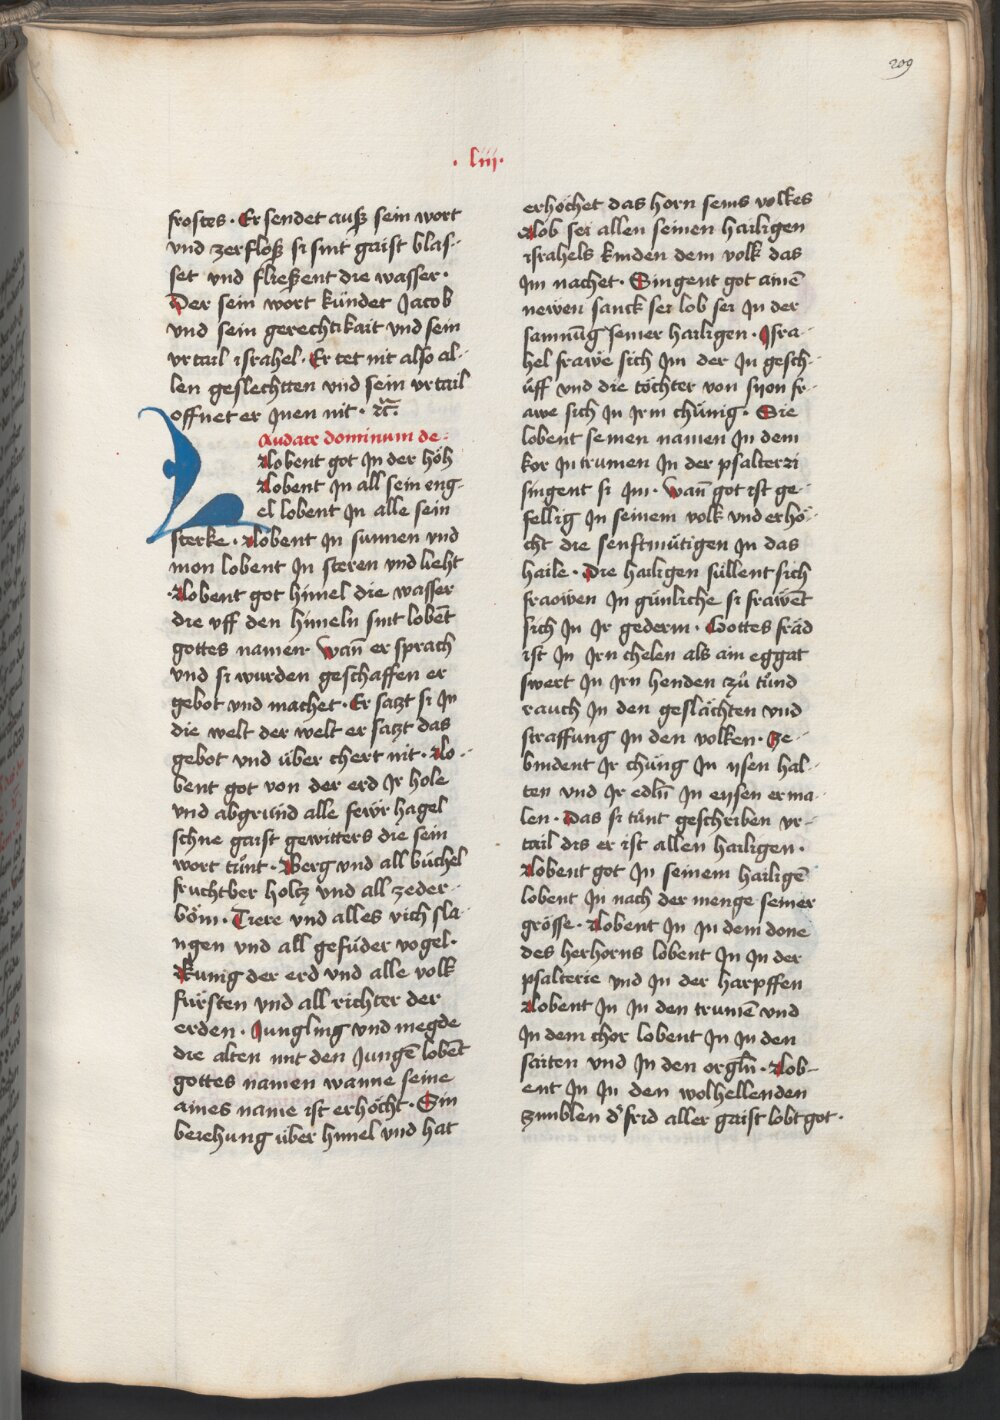 209
. liii.
frostes. Er sendet auß sein wort
vnd zerfloß si sint gaist blas-
set vnd fließent die wasser.
Der sein wort kündet Jacob
vnd sein gerechtikait vnd sein
vrtail israhel. Er tet nit also al-
len geslechtten vnd sein vrtail
offnet er Jnen nit. ꝛc̃.
Laudate dominum de.
Lobent got Jn der höh
Lobent Jn all sein eng-
el lobent Jn alle sein
sterke. Lobent Jn sunnen vnd
mon lobent Jn steren vnd lieht
Lobent got himel die wasser
die vff den himeln sint lobēt
gottes namen. Wañ er sprach
vnd si wurden geschaffen er
gebot vnd machet. Er satzt si Jn
die welt der welt er satzt das
gebot vnd über chert nit. Lo-
bent got von der erd Jr hole
vnd abgründ alle fewr hagel
schne gaist gewitters die sein
wort tůnt. Berg vnd all büchel
fruchtber holtz vnd all zeder-
böm. Tiere vnd alles vich sla-
ngen vnd all gefüder vogel.
Kunig der erd vnd alle volk
fürsten vnd all richter der
erden. Jungling vnd megde
die alten mit den Jungē lobēt
gottes namen wanne seine
aines name ist erhöcht. Sin
beiehung über himel vnd hat
erhöchet das horn seins volkes
Lob sei allen seinen hailigen
israhels kinden dem volk das
Jm nachet. Singent got ainē
newen sanck sei lob sei Jn der
samnūg seiner hailigen. Jsra-
hel frawe sich Jm der Jn gesch-
üff vnd die töchter von syon fr-
awe sich Jn Jrm chünig. Sie
lobent seinen namen Jn dem
kor Jn trumen Jn der psalterzi
singent si Jm. Wañ got ist ge-
fellig Jn seinem volk vnd erhö-
cht die senftmütigen Jn das
haile. Die hailigen süllent sich
fraowen Jn günliche si frawēt
sich Jn Jr gederm. Gottes fräd
ist Jn Jrn chelen als ain eggat
swert Jn Jrn henden zů tůnd
rauch Jn den geslächten vnd
straffung Jn den volken. Ze-
bindent Jr chüng Jn ysen hal-
ten vnd Jr edlñ Jn eysen erma-
len. Das si tůnt geschriben vr-
tail dis er ist allen hailigen.
Lobent got Jn seinem hailigē
lobent Jn nach der menge seiner
grösse. Lobent Jn Jn dem done
des herhorns lobent Jn Jn der
psalterie vnd Jn der harpffen
Lobent Jn Jn den trumē vnd
Jn dem chor lobent Jn Jn den
saiten vnd Jn den orglñ. Lob-
ent Jn Jn den wolhellenden
zimblen d' frid aller gaist lobt got.